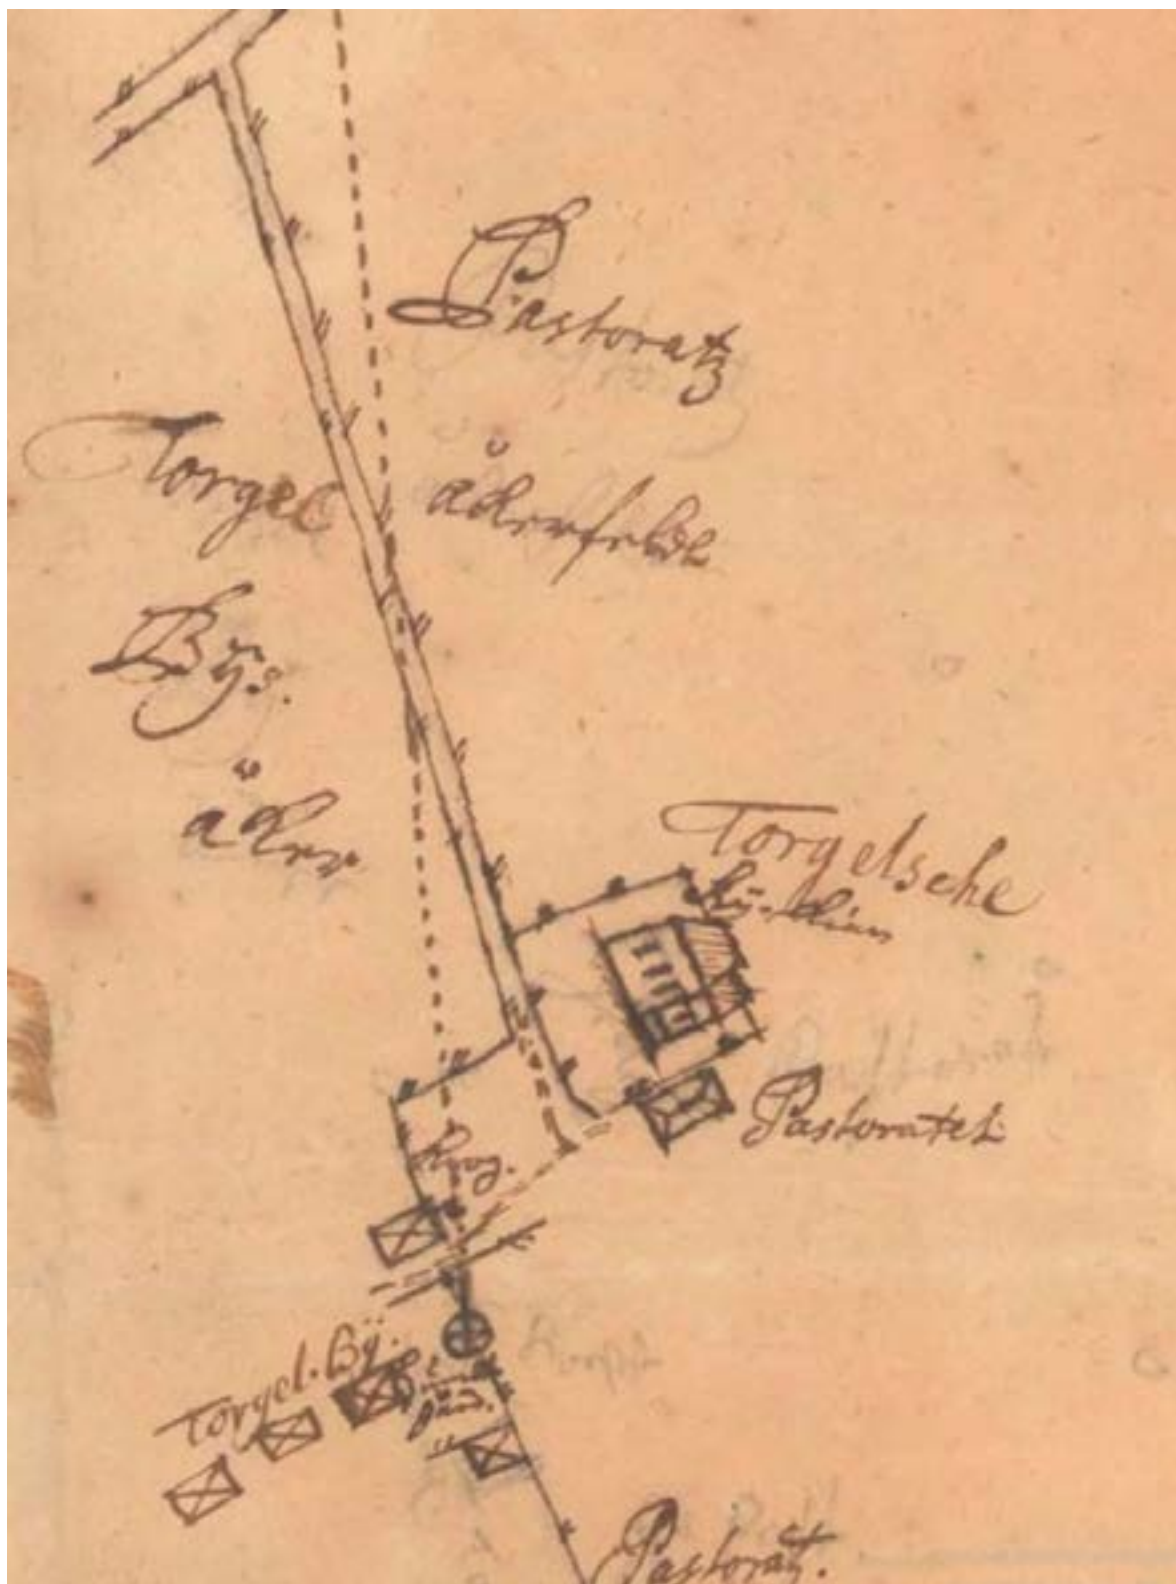 Pastoratz
åkerfeldt
Torgel
Bÿs.
åker
Torgelsche
Kyrckian
Pastoratet
Krog.
Torgel. Bÿ.
Pastoratz.